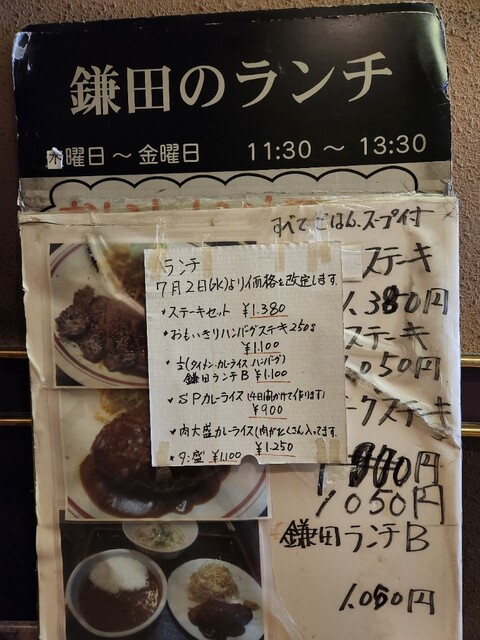 鎌田のランチ
木曜日～金曜日 11:30～13:30
すべてごはん、スープ付
ランチ
7月2日(水)より価格を改定します。
・ステーキセット ¥1.380
・おもいきりハンバグステキ250g
¥1.100
・½(タイトメン・カレーライス ハンバーグ)
鎌田ランチB ¥1.100
・SPカレーライス(4日間かけて作ります)
¥900
・肉大盛カレーライス(肉がたくさん入ってます。
¥1.250
¥1.100
ステーキ
1.380円
ステーキ
1.050円
ークステキ
円
1050円
鎌田ランチB
1.050円